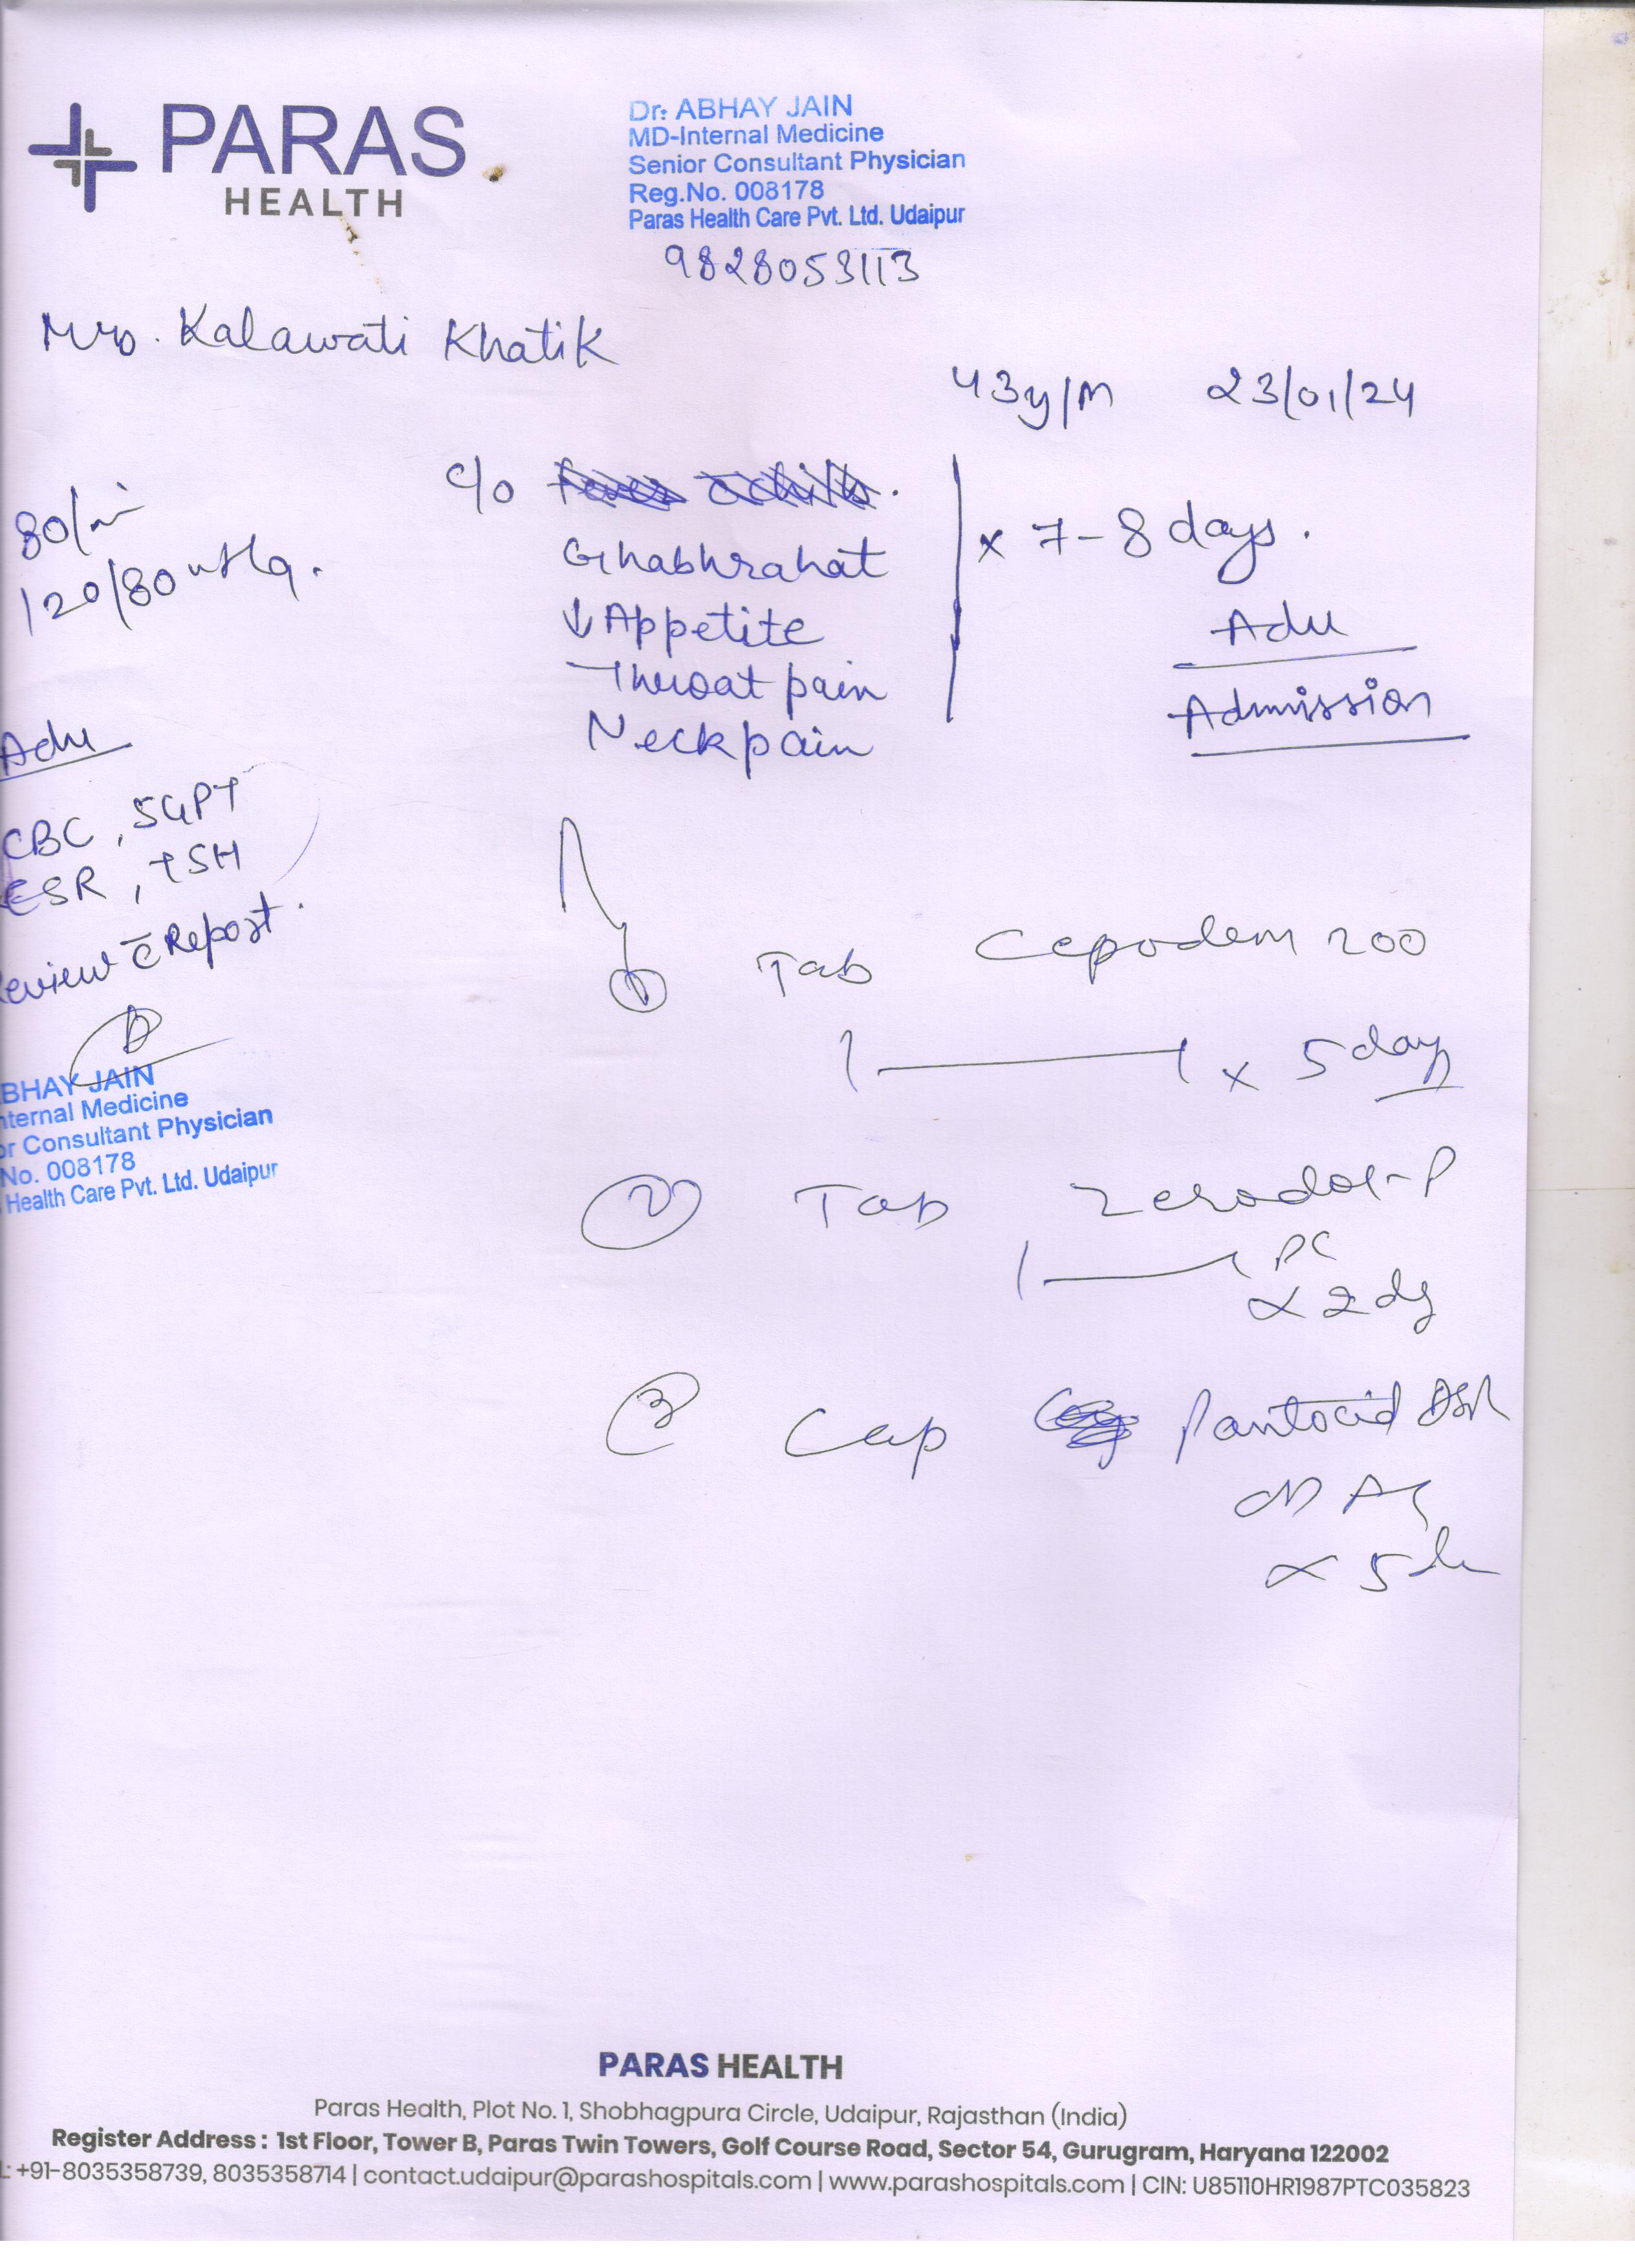 PARAS
HEALTH
Dr. ABHAY JAIN
MD-Internal Medicine
Senior Consultant Physician
Reg.No. 008178
Paras Health Care Pvt. Ltd. Udaipur
9828053113
Mrs. Kalawati Khatik
43y/M 23/01/24
c/o
Ghabhrahat
↓ Appetite
Throat pain
Neck pain
x 7-8 days.
Adv
Admission
80/min
120/80 mmHg.
Adv
CBC, SGPT
ESR, TSH
Review c̄ Report.
BHAY JAIN
nternal Medicine
or Consultant Physician
No. 008178
Health Care Pvt. Ltd. Udaipur
① Tab Cepodem 200
1 — 1 x 5 day
② Tab Zerodol-P
1 — 1 PC
x 2 dy
③ Cap Pantocid DSR
x 5
PARAS HEALTH
Paras Health, Plot No. 1, Shobhagpura Circle, Udaipur, Rajasthan (India)
Register Address : 1st Floor, Tower B, Paras Twin Towers, Golf Course Road, Sector 54, Gurugram, Haryana 122002
: +91-8035358739, 8035358714 | contact.udaipur@parashospitals.com | www.parashospitals.com | CIN: U85110HR1987PTC035823